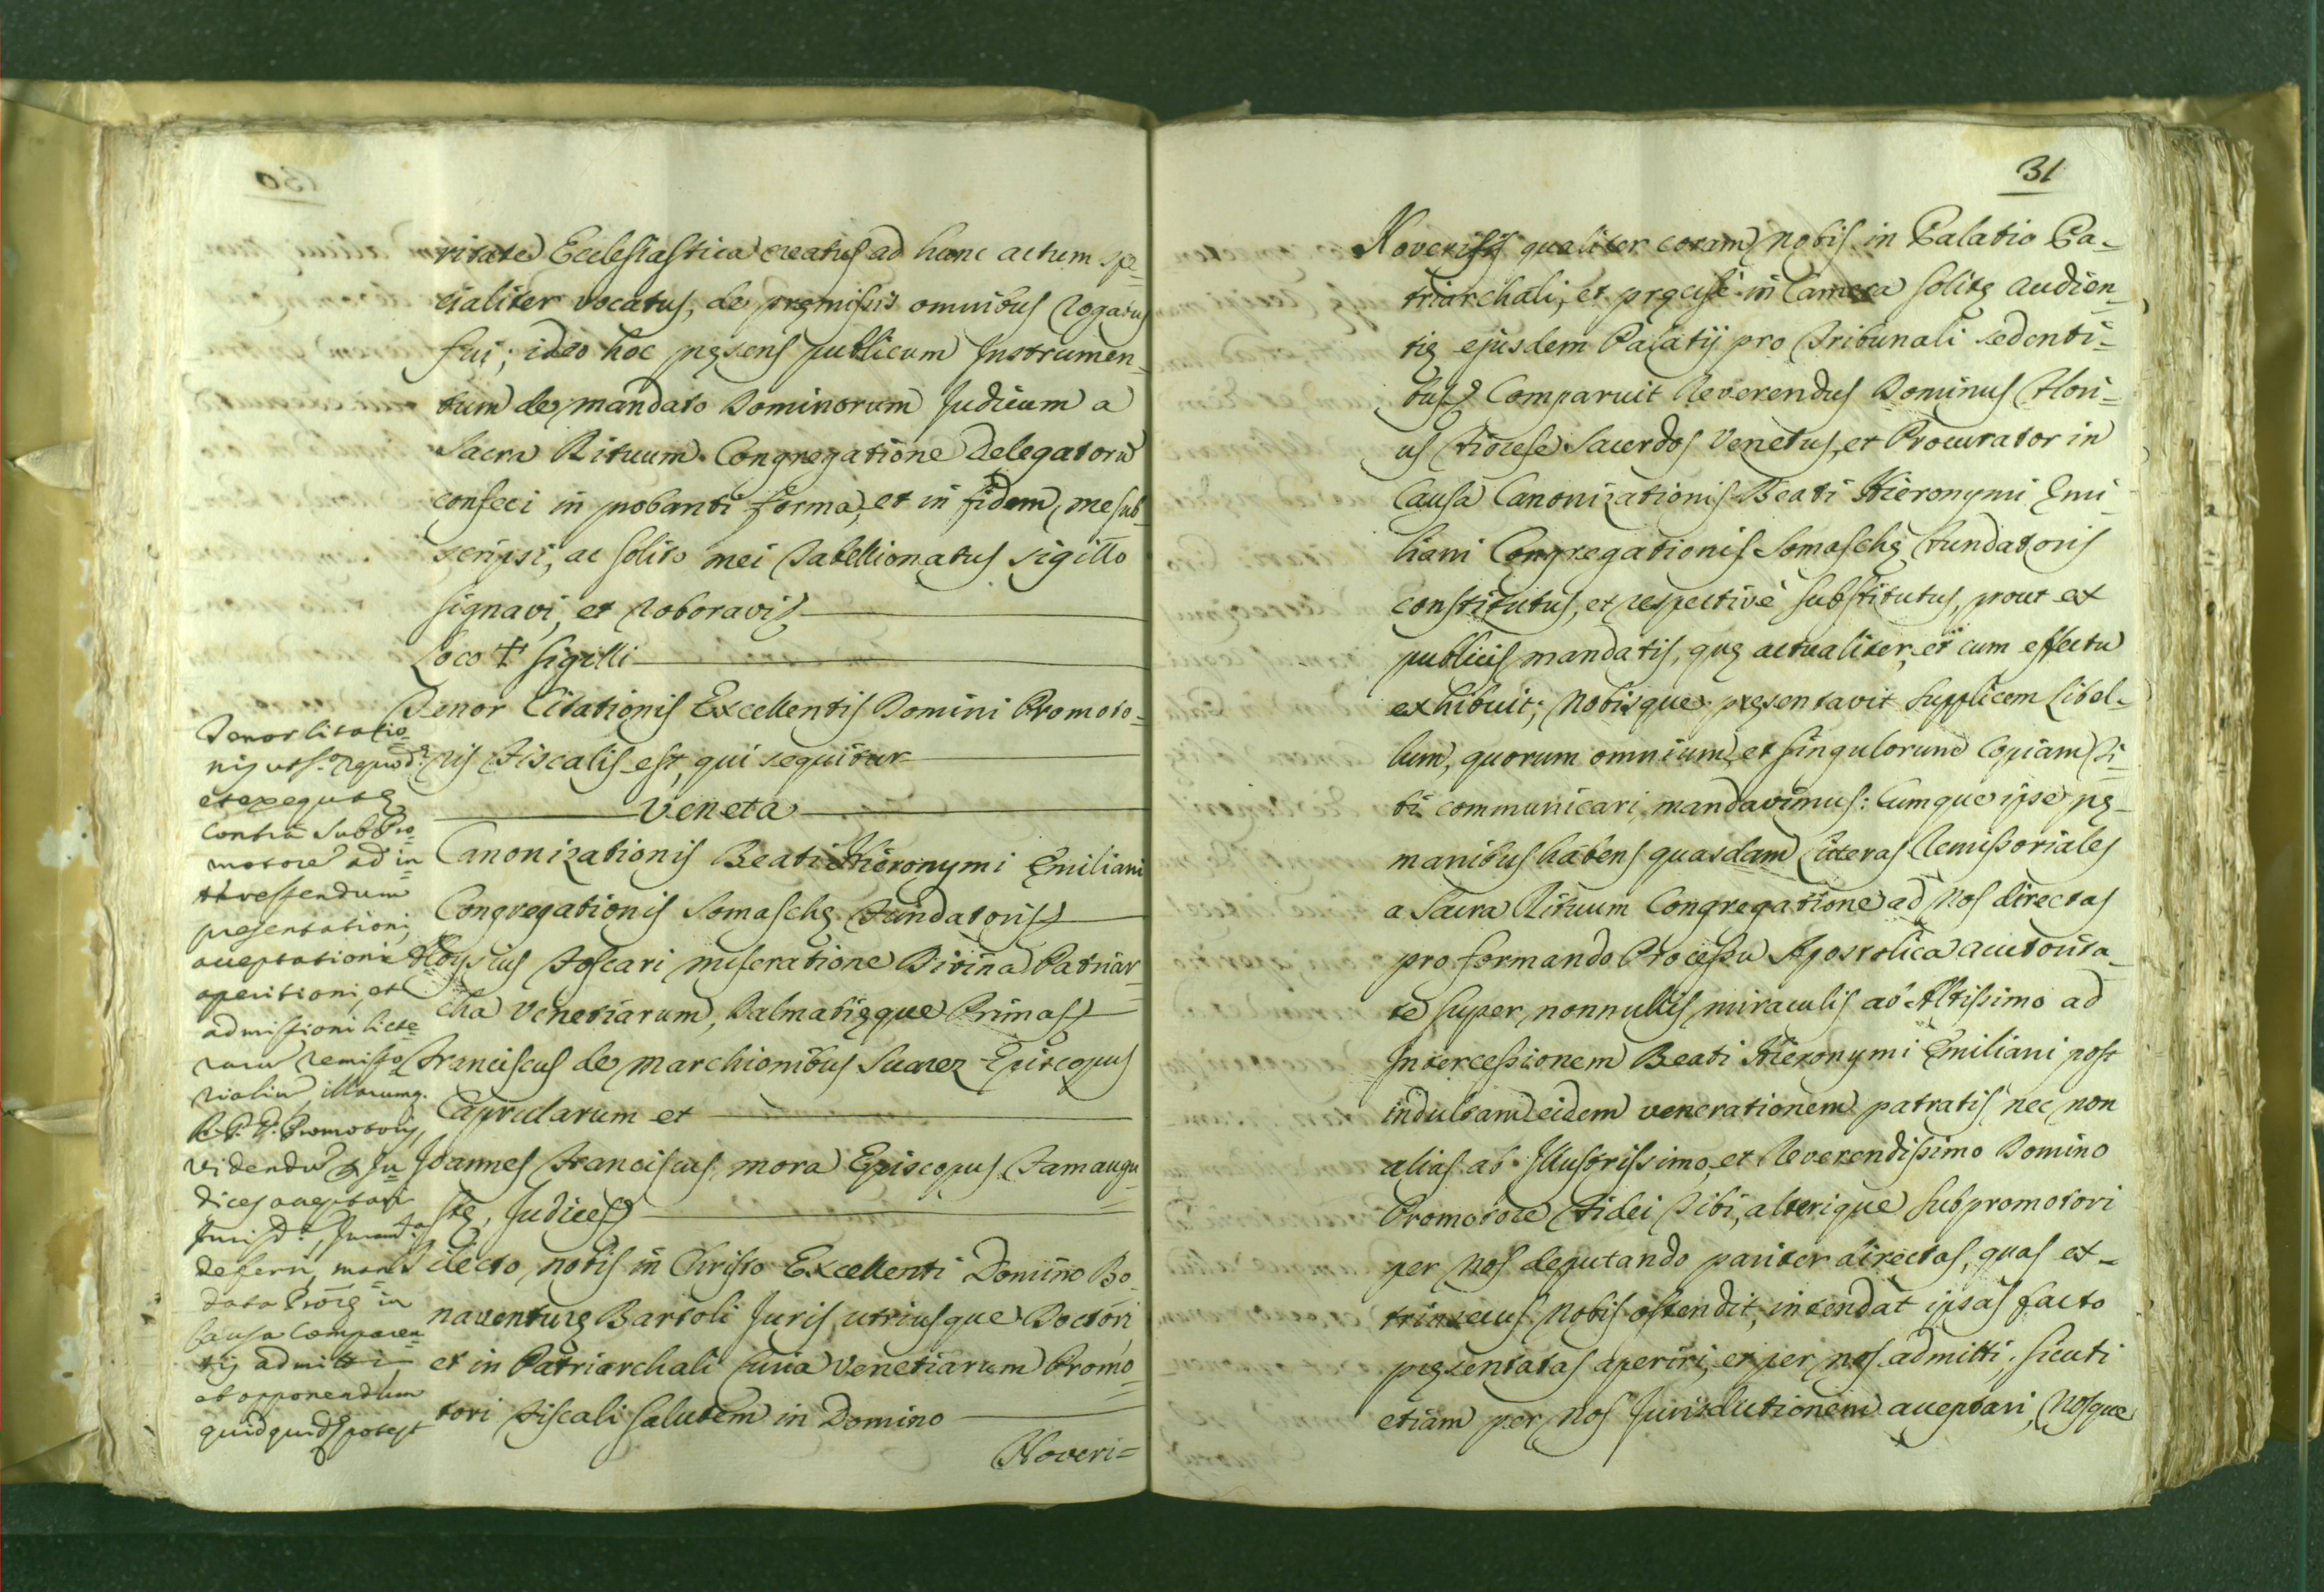 ritate Ecclesiastica creatus ad hunc actum spe=
cialiter vocatus, de pręmissis omnibus rogatus
fui; ideo hoc pręsens publicum Instrumen=
tum de mandato Dominorum Judicum a
Sacra Rituum Congregatione Delegatorũ
confeci in probanti forma, et in fidem, me sub=
scripsi, ac solito mei Tabellionatus sigillo
signavi, et roboravi
Loco ✝ Sigilli
Tenor Citationis Excellentis Domini Promoto=
ris Fiscalis est, qui sequitur
Veneta
Canonizationis Beati Hieronymi Emiliani
Congregationis Somaschę Fundatoris
Aloysius Foscari miseratione Divina Patriar=
cha Venetiarum, Dalmatięque Primas
Franciscus de Marchionibus Suarez Episcopus
Caprularum et
Joannes Franciscus Mora Episcopus Famaugu=
stę, Judices
Dilecto nobis in Christo Excellenti Domino Bo=
naventurę Bartoli Juris utriusque Doctori,
et in Patriarchali Curia Venetiarum Promo=
tori Fiscali Salutem in Domino
Noveri=
Tenor Citatio=
nis
et exequutę
contra SubPro=
motore ad in=
teressendum
presentationi,
acceptationi
aperitioni, et
admissioni litte=
rarũ remisso
rialiũ, illarumq.
R. P. D. Promotoris,
videndũ & Ju=
dices acceptare
Jurisd.ᵐ, Juram.ᵗᵃ
deferri, man=
data Proris in
Causa Comparen=
tis admitti,
et opponendum
quidquid potest
31
Noveritis qualiter coram Nobis in Palatio Pa=
triarchali, et pręcisè in Camera solitę audien=
tię ejusdem Palatij pro Tribunali sedenti=
bus Comparuit Reverendus Dominus Flori=
us Fiorese Sacerdos Venetus, et Procurator in
Causa Canonizationis Beati Hieronymi Emi=
liani Congregationis Somaschę Fundatoris
constitutus, et respectivè substitutus, prout ex
publicis mandatis, quę actualiter, et cum effectu
exhibuit; Nobisque pręsentavit supplicem Libel=
lum, quorum omnium, et singulorum Copiam Ti=
bi communicari mandavimus: Cumque ipse pę=
manibus habens quasdam Litteras Remissoriales
a Sacra Rituum Congregatione ad Nos directas
pro formando Processu Apostolica auctorita=
te super nonnullis miraculis ab Altissimo ad
Intercessionem Beati Hieronymi Emiliani post
indultam eidem venerationem patratis nec non
alias ab Illustrissimo, et Reverendissimo Domino
Promotore Fidei Tibi, alterique subpromotori
per Nos deputando pariter directas, quas ex=
trinsecus Nobis ostendit, intendat ipsas facto
pręsentatas aperiri, et per Nos admitti, sicuti
etiam per Nos Jurisdictionem acceptari, Nosque